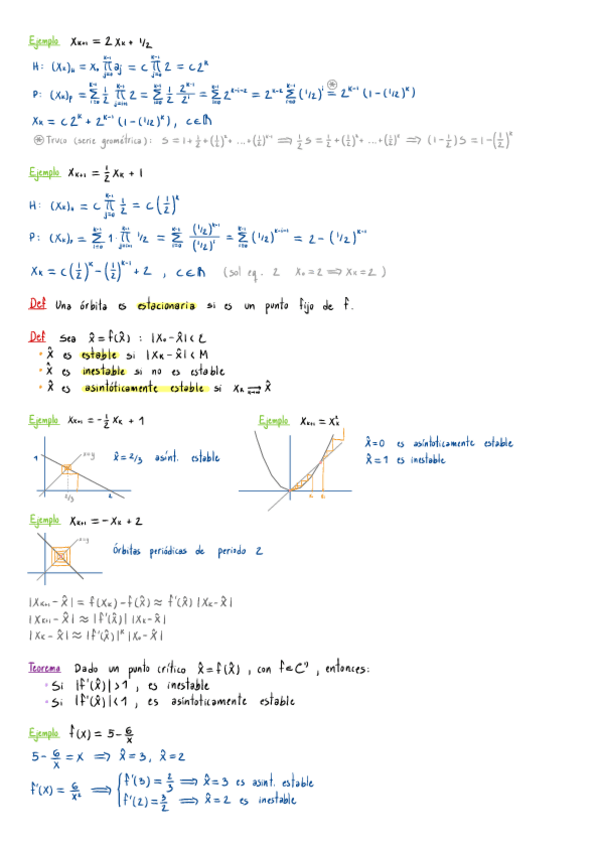 Ejemplo Xₖ₊₁ = 2Xₖ + 1/2
H: (Xₖ)ₕ = X₀ ∏_{j=0}^{k-1} aⱼ = c ∏_{j=0}^{k-1} 2 = c2ᵏ
P: (Xₖ)ₚ = Σ_{i=0}^{k-1} 1/2 ∏_{j=i+1}^{k-1} 2 = Σ_{i=0}^{k-1} 1/2 · 2^{k-1}/2^i = Σ_{i=0}^{k-1} 2^{k-i-2} = 2^{k-2} Σ_{i=0}^{k-1} (1/2)^i =^⊛ 2^{k-1} (1-(1/2)^k)
Xₖ = c2ᵏ + 2^{k-1} (1-(1/2)^k), c∈ℝ
⊛ Truco (serie geométrica): S = 1+1/2+(1/2)²+...+(1/2)^k ⟹ 1/2 S = 1/2+(1/2)²+...+(1/2)^k ⟹ (1-1/2)S = 1-(1/2)^k
Ejemplo Xₖ₊₁ = 1/2 Xₖ + 1
H: (Xₖ)ₕ = c ∏_{j=0}^{k-1} 1/2 = c(1/2)^k
P: (Xₖ)ₚ = Σ_{i=0}^{k-1} 1 · ∏_{j=i+1}^{k-1} 1/2 = Σ_{i=0}^{k-1} (1/2)^{k-1}/(1/2)^i = Σ_{i=0}^{k-1} (1/2)^{k-i-1} = 2-(1/2)^{k-1}
Xₖ = c(1/2)^k - (1/2)^{k-1} + 2, c∈ℝ (sol eq. 2 X₀=2 ⟹ Xₖ=2)
Def Una órbita es estacionaria si es un punto fijo de f.
Def Sea x̂ = f(x̂) : |X₀-x̂| < ε
• x̂ es estable si |Xₖ-x̂| < M
• x̂ es inestable si no es estable
• x̂ es asintóticamente estable si Xₖ → x̂
Ejemplo Xₖ₊₁ = -1/2 Xₖ + 1
Ejemplo Xₖ₊₁ = Xₖ²
x=y
1
x̂=2/3 asint. estable
2/3
2
x̂=0 es asintóticamente estable
x̂=1 es inestable
Ejemplo Xₖ₊₁ = -Xₖ + 2
x=y
Órbitas periódicas de periodo 2
|Xₖ₊₁-x̂| = f(Xₖ)-f(x̂) ≈ f'(x̂) |Xₖ-x̂|
|Xₖ₊₁-x̂| ≈ |f'(x̂)| |Xₖ-x̂|
|Xₖ-x̂| ≈ |f'(x̂)|^k |X₀-x̂|
Teorema Dado un punto crítico x̂=f(x̂), con f∈C¹, entonces:
• Si |f'(x̂)|>1, es inestable
• Si |f'(x̂)|<1, es asintóticamente estable
Ejemplo f(x) = 5-6/x
5-6/x = x ⟹ x̂=3, x̂=2
f'(x) = 6/x² ⟹ { f'(3) = 2/3 ⟹ x̂=3 es asint. estable
f'(2) = 3/2 ⟹ x̂=2 es inestable